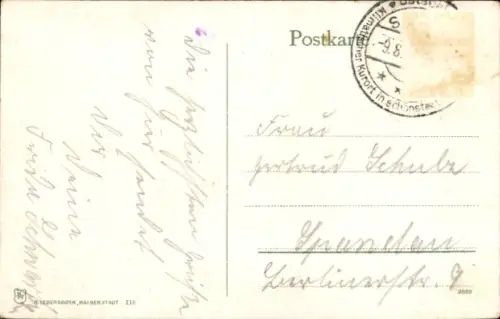 Postkarte
Klimatischer Kurort in schönster
-9.8.
Die herzlichsten Grüße
von hier sendet
Dir
Deine
Frida
Frau
Gertrud Schulze
Spandau
Berlinerstr. 9